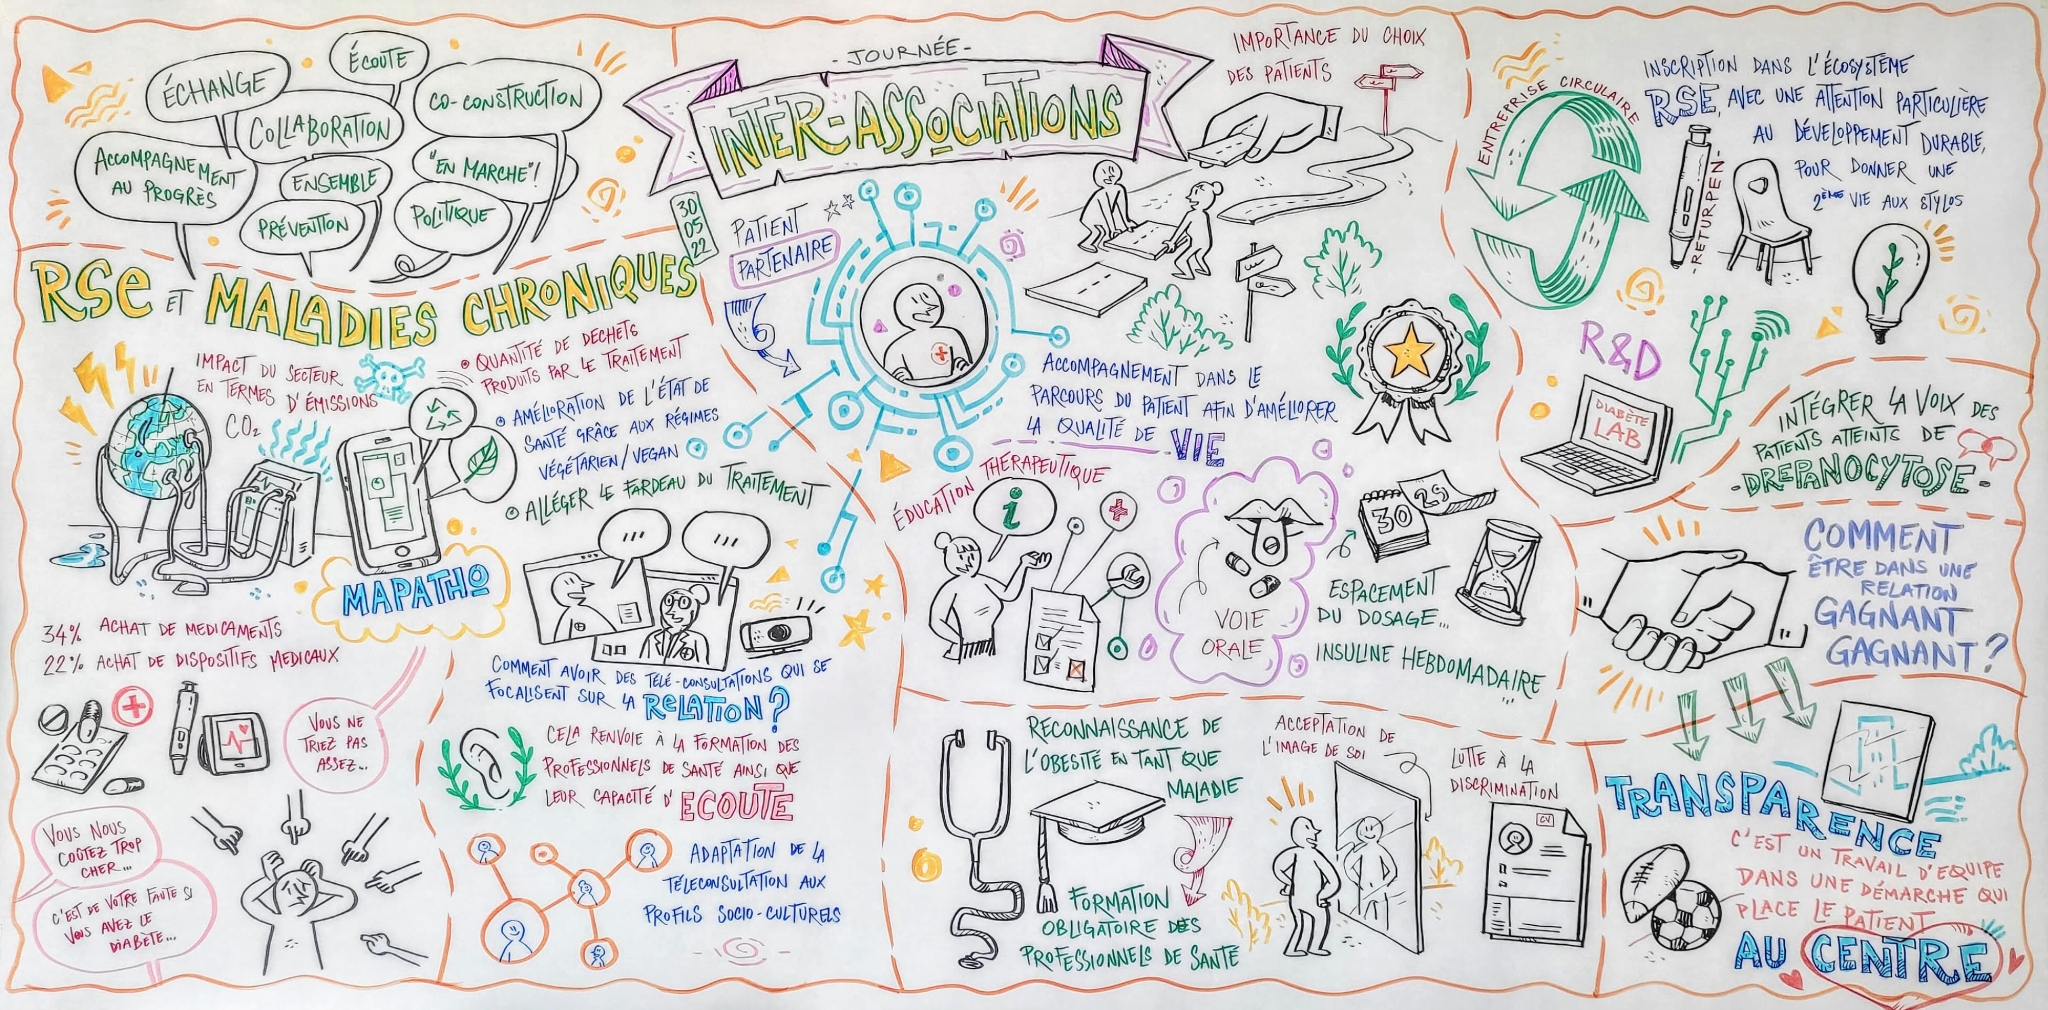 ÉCHANGE
ÉCOUTE
COLLABORATION
CO-CONSTRUCTION
ACCOMPAGNEMENT
AU PROGRÈS
ENSEMBLE
"EN MARCHE"!
PRÉVENTION
POLITIQUE
-JOURNÉE-
INTER-ASSOCIATIONS
30
05
22
IMPORTANCE DU CHOIX
DES PATIENTS
PATIENT
PARTENAIRE
ACCOMPAGNEMENT DANS LE
PARCOURS DU PATIENT AFIN D'AMÉLIORER
LA QUALITÉ DE VIE
ENTREPRISE CIRCULAIRE
INSCRIPTION DANS L'ÉCOSYSTÈME
RSE, AVEC UNE ATTENTION PARTICULIÈRE
AU DÉVELOPPEMENT DURABLE,
POUR DONNER UNE
2ÈME VIE AUX STYLOS
-RETURPEN-
R&D
DIABÈTE
LAB
INTÉGRER LA VOIX DES
PATIENTS ATTEINTS DE
-DREPANOCYTOSE-
RSE ET MALADIES CHRONIQUES
IMPACT DU SECTEUR
EN TERMES D'ÉMISSIONS
CO2
• QUANTITÉ DE DECHETS
PRODUITS PAR LE TRAITEMENT
• AMÉLIORATION DE L'ÉTAT DE
SANTÉ GRÂCE AUX RÉGIMES
VÉGÉTARIEN/VEGAN
• ALLÉGER LE FARDEAU DU TRAITEMENT
MAPATHO
34% ACHAT DE MEDICAMENTS
22% ACHAT DE DISPOSITIFS MEDICAUX
VOUS NE
TRIEZ PAS
ASSEZ...
VOUS NOUS
COÛTEZ TROP
CHER...
C'EST DE VOTRE FAUTE SI
VOUS AVEZ LE
DIABÈTE...
COMMENT AVOIR DES TÉLÉ-CONSULTATIONS QUI SE
FOCALISENT SUR LA RELATION?
CELA RENVOIE À LA FORMATION DES
PROFESSIONNELS DE SANTÉ AINSI QUE
LEUR CAPACITÉ D'ECOUTE
ADAPTATION DE LA
TÉLÉCONSULTATION AUX
PROFILS SOCIO-CULTURELS
ÉDUCATION THÉRAPEUTIQUE
i
VOIE
ORALE
30
29
ESPACEMENT
DU DOSAGE...
INSULINE HEBDOMADAIRE
...
RECONNAISSANCE DE
L'OBÉSITÉ EN TANT QUE
MALADIE
FORMATION
OBLIGATOIRE DES
PROFESSIONNELS DE SANTÉ
ACCEPTATION DE
L'IMAGE DE SOI
LUTTE À LA
DISCRIMINATION
CV
COMMENT
ÊTRE DANS UNE
RELATION
GAGNANT
GAGNANT?
TRANSPARENCE
C'EST UN TRAVAIL D'EQUIPE
DANS UNE DÉMARCHE QUI
PLACE LE PATIENT
AU CENTRE